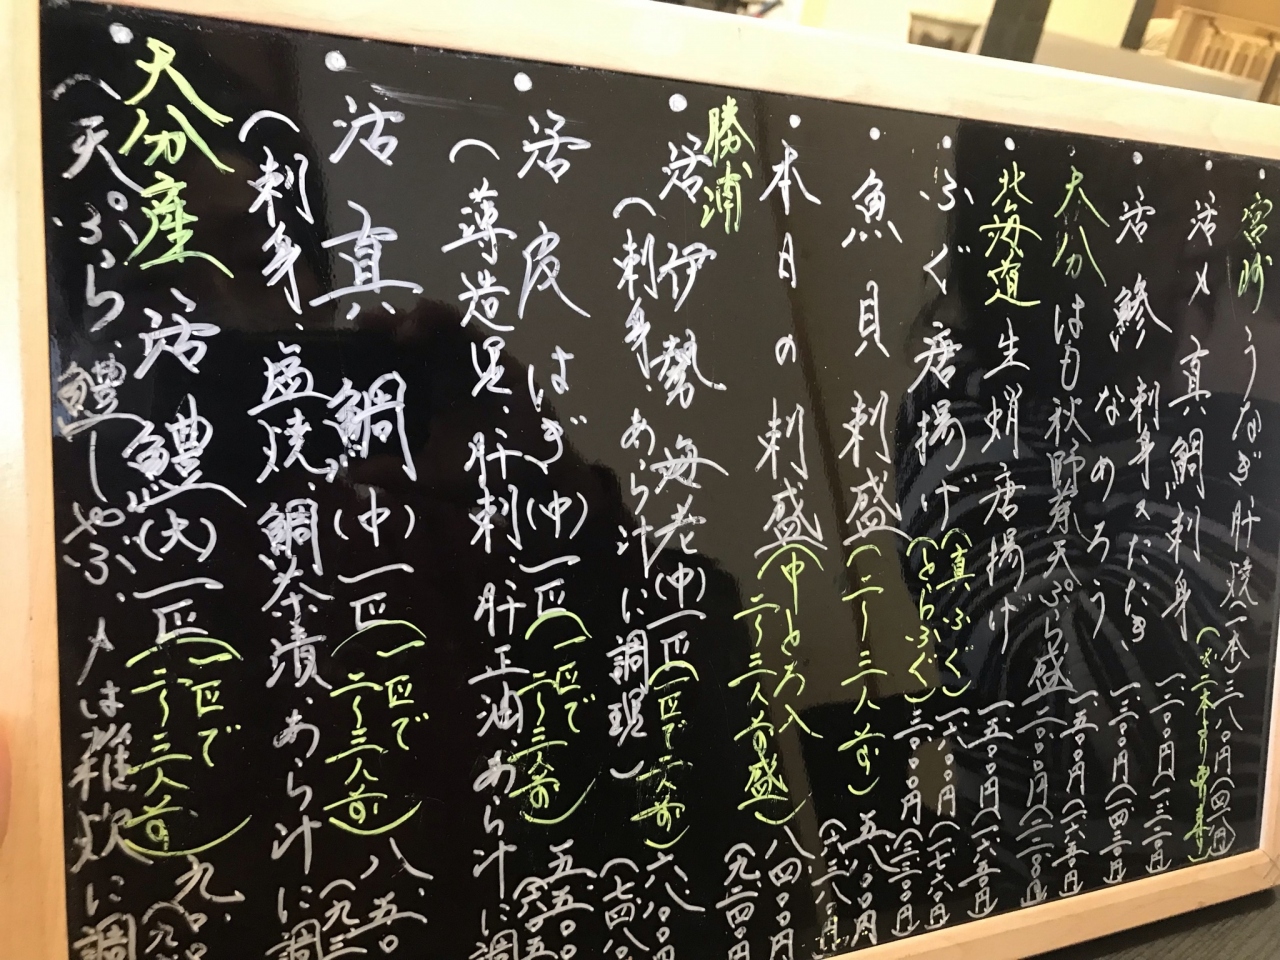 宮崎 うなぎ肝焼(一本)三八〇円(四一八円)
(※二本より承ります)
活〆真鯛刺身 一.二〇〇円(一.三二〇円)
活鯵 刺身 又 たたき
なめろう 一.三〇〇円(一.四三〇円)
大分 はも秋野菜天ぷら盛 一.五〇〇円(一.六五〇円)
北海道 生蛸唐揚げ 一.五〇〇円(一.六五〇円)
ふぐ唐揚げ(真ふぐ) 一.六〇〇円(一.七六〇円)
(とらふぐ) 三.〇〇〇円(三.三〇〇円)
魚貝刺盛(二〜三人前) 五.八〇〇円(六.三八〇円)
本日の刺盛(中とろ入 二〜三人前盛) 八.四〇〇円(九.二四〇円)
勝浦 活伊勢海老(中)一匹(一匹で二人前) 六.八〇〇
(刺身、あら汁に調理) (七.四八〇
活皮はぎ(中)一匹(一匹で二〜三人前) 五.五〇〇
(薄造里、肝刺、肝正油、あら汁に調 (六.〇五
活真鯛(中)一匹(一匹で二〜三人前) 八.五〇
(刺身、塩焼、鯛茶漬、あら汁に調 (九.三
大分産 活鱧(大)一匹(一匹で二〜三人前) 九.〇〇
(天ぷら、鱧しゃぶ、〆は雑炊に調 (九